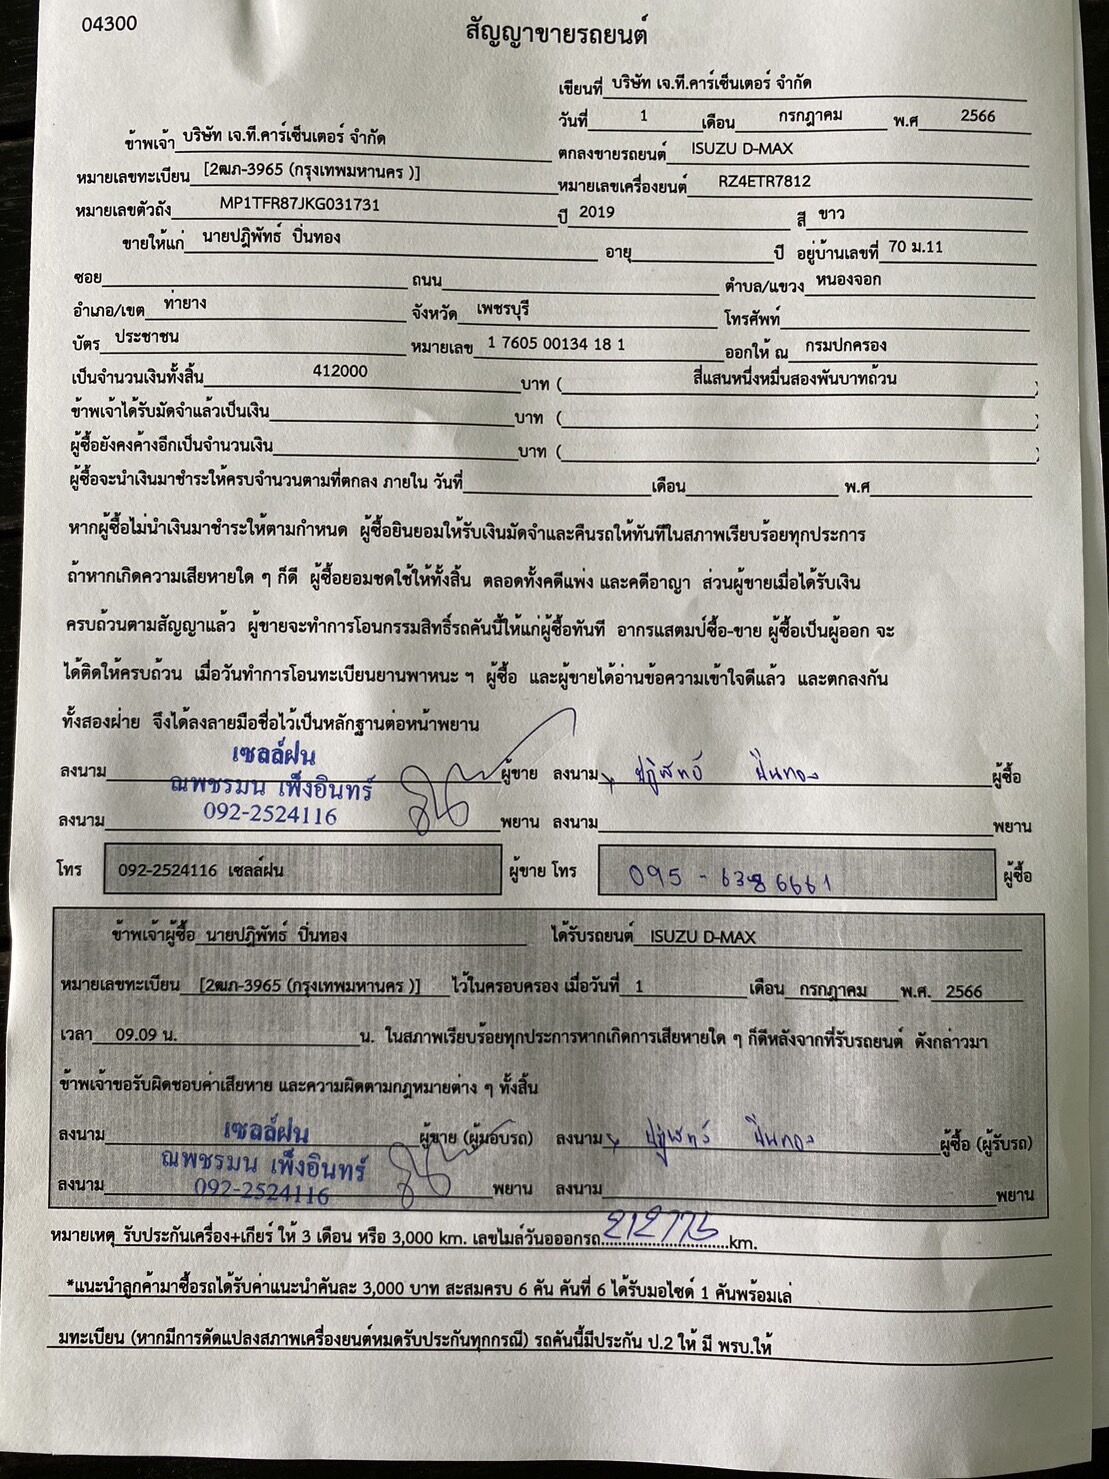 04300
สัญญาขายรถยนต์
เขียนที่ บริษัท เจ.ที.คาร์เซ็นเตอร์ จำกัด
วันที่ 1 เดือน กรกฎาคม พ.ศ 2566
ข้าพเจ้า บริษัท เจ.ที.คาร์เซ็นเตอร์ จำกัด ตกลงขายรถยนต์ ISUZU D-MAX
หมายเลขทะเบียน [2ฒภ-3965 (กรุงเทพมหานคร )] หมายเลขเครื่องยนต์ RZ4ETR7812
หมายเลขตัวถัง MP1TFR87JKG031731 ปี 2019 สี ขาว
ขายให้แก่ นายปฎิพัทธ์ ปิ่นทอง อายุ ปี อยู่บ้านเลขที่ 70 ม.11
ซอย ถนน ตำบล/แขวง หนองจอก
อำเภอ/เขต ท่ายาง จังหวัด เพชรบุรี โทรศัพท์
บัตร ประชาชน หมายเลข 1 7605 00134 18 1 ออกให้ ณ กรมปกครอง
เป็นจำนวนเงินทั้งสิ้น 412000 บาท ( สี่แสนหนึ่งหมื่นสองพันบาทถ้วน )
ข้าพเจ้าได้รับมัดจำแล้วเป็นเงิน บาท ( )
ผู้ซื้อยังคงค้างอีกเป็นจำนวนเงิน บาท ( )
ผู้ซื้อจะนำเงินมาชำระให้ครบจำนวนตามที่ตกลง ภายใน วันที่ เดือน พ.ศ
หากผู้ซื้อไม่นำเงินมาชำระให้ตามกำหนด ผู้ซื้อยินยอมให้รับเงินมัดจำและคืนรถให้ทันทีในสภาพเรียบร้อยทุกประการ
ถ้าหากเกิดความเสียหายใด ๆ ก็ดี ผู้ซื้อยอมชดใช้ให้ทั้งสิ้น ตลอดทั้งคดีแพ่ง และคดีอาญา ส่วนผู้ขายเมื่อได้รับเงิน
ครบถ้วนตามสัญญาแล้ว ผู้ขายจะทำการโอนกรรมสิทธิ์รถคันนี้ให้แก่ผู้ซื้อทันที อากรแสตมป์ซื้อ-ขาย ผู้ซื้อเป็นผู้ออก จะ
ได้ติดให้ครบถ้วน เมื่อวันทำการโอนทะเบียนยานพาหนะ ฯ ผู้ซื้อ และผู้ขายได้อ่านข้อความเข้าใจดีแล้ว และตกลงกัน
ทั้งสองฝ่าย จึงได้ลงลายมือชื่อไว้เป็นหลักฐานต่อหน้าพยาน
เซลล์ฝน
ลงนาม ณพชรมน เพ็งอินทร์ ผู้ขาย ลงนาม ปฎิพัทธ์ ปิ่นทอง ผู้ซื้อ
092-2524116
ลงนาม พยาน ลงนาม พยาน
โทร 092-2524116 เซลล์ฝน ผู้ขาย โทร 095 - 6386661 ผู้ซื้อ
ข้าพเจ้าผู้ซื้อ นายปฎิพัทธ์ ปิ่นทอง ได้รับรถยนต์ ISUZU D-MAX
หมายเลขทะเบียน [2ฒภ-3965 (กรุงเทพมหานคร )] ไว้ในครอบครอง เมื่อวันที่ 1 เดือน กรกฎาคม พ.ศ. 2566
เวลา 09.09 น. น. ในสภาพเรียบร้อยทุกประการหากเกิดการเสียหายใด ๆ ก็ดีหลังจากที่รับรถยนต์ ดังกล่าวมา
ข้าพเจ้าขอรับผิดชอบค่าเสียหาย และความผิดตามกฎหมายต่าง ๆ ทั้งสิ้น
ลงนาม เซลล์ฝน ผู้ขาย (ผู้มอบรถ) ลงนาม ปฎิพัทธ์ ปิ่นทอง ผู้ซื้อ (ผู้รับรถ)
ณพชรมน เพ็งอินทร์
ลงนาม 092-2524116 พยาน ลงนาม พยาน
หมายเหตุ รับประกันเครื่อง+เกียร์ ให้ 3 เดือน หรือ 3,000 km. เลขไมล์วันอออกรถ 212775 km.
*แนะนำลูกค้ามาซื้อรถได้รับค่าแนะนำคันละ 3,000 บาท สะสมครบ 6 คัน คันที่ 6 ได้รับมอไซด์ 1 คันพร้อมเล่
มทะเบียน (หากมีการดัดแปลงสภาพเครื่องยนต์หมดรับประกันทุกกรณี) รถคันนี้มีประกัน ป.2 ให้ มี พรบ.ให้